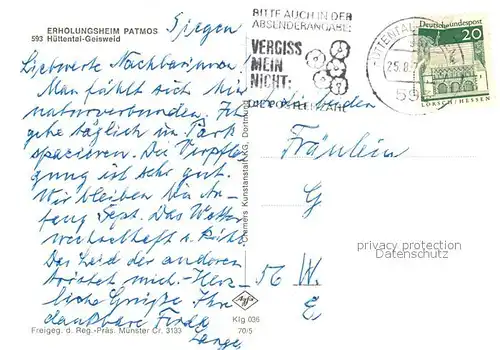 ERHOLUNGSHEIM PATMOS
593 Hüttental-Geisweid
Siegen
Liebwerte Nachbarinnen!
Man fühlt sich hier
naturverbunden. Ich
gehe täglich im Park
spazieren. Die Verpfle-
gung ist sehr gut.
Wir bleiben bis An-
fang Sept. Das Wetter
wechselhaft u. kühl.
Das Leid der anderen
tröstet mich. Herz-
liche Grüße, Ihre
dankbare
Lange
Freigeg. d. Reg.-Präs. Münster Cr. 3133
Cramers Kunstanstalt KG, Dortmund
BITTE AUCH IN DER
ABSENDERANGABE:
VERGISS
MEIN
NICHT:
DIE POSTLEITZAHL
HÜTTENTAL
25.8.
59
Deutsche Bundespost
20
LORSCH/HESSEN
Fräulein
G
56 W.
E
privacy protection
Datenschutz
Agfa
Klg 036
70/5